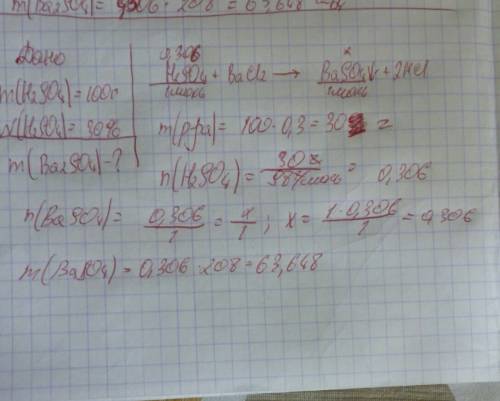 m(Ba2SO4) = 0,306 · 208 = 63,648
Дано
m(H2SO4) = 100г
(H2SO4) = 30%
m(Ba2SO4) - ?
0,306 x
H2SO4 + BaCl2 → BaSO4↓ + 2HCl
1моль 1моль
m(р-ра) = 100 · 0,3 = 30 г
n(H2SO4) = 30г / 98г/моль = 0,306
n(BaSO4) = 0,306/1 = x/1 ; x = 1·0,306/1 = 0,306
m(BaSO4) = 0,306 · 208 = 63,648